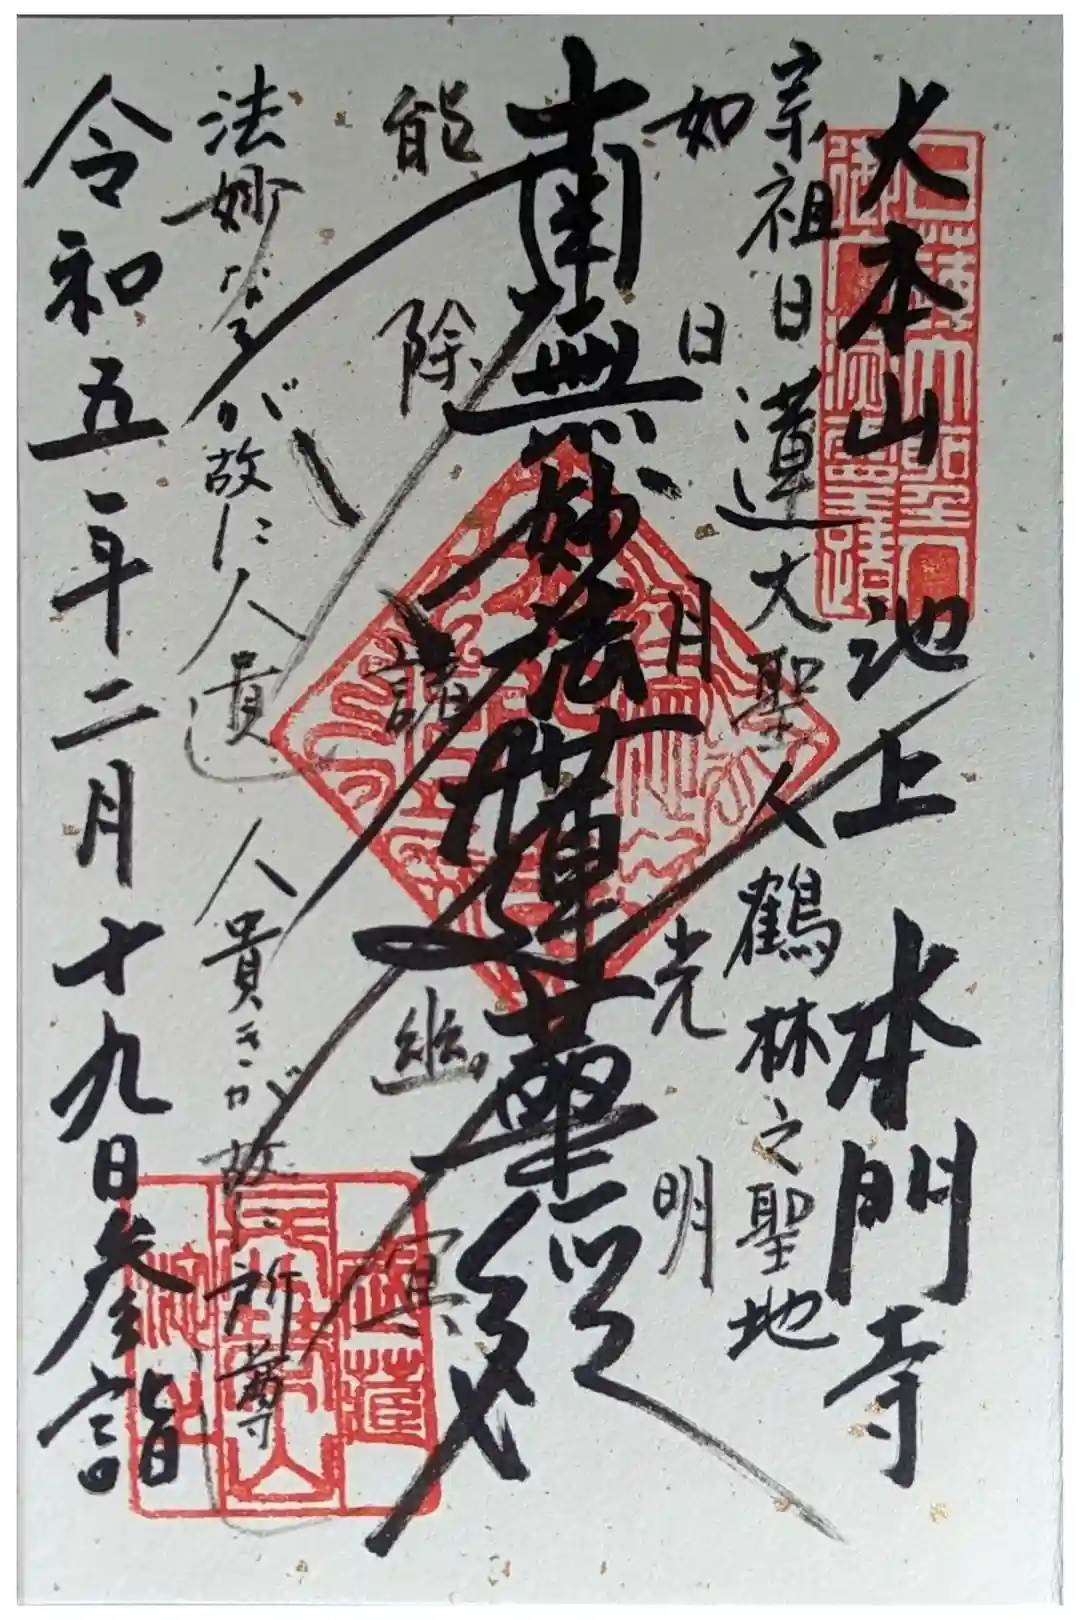 大本山 池上 本門寺
宗祖日蓮大聖人鶴林之聖地
如日月光明
南無妙法蓮華経
能除諸幽冥
法妙なるが故に人貴
人貴きが故に所尊
令和五年二月十九日参詣